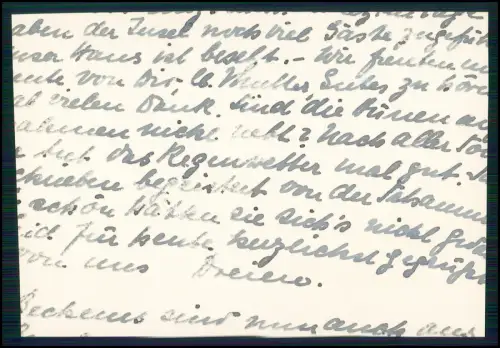 aben der Insel noch viel Gäste zugefüh
nser Haus ist besetzt. – Wir freuten un
eute von Dir, u. Mutter, Gutes zu hör
ab vielen Dank. Sind die Dünen au
ahmen nicht nett? Nach aller Son
tut das Regenwetter mal gut.
chrieben begeistert von der
schön hätten sie sich's nicht ged
eid für heute herzlichst gegrüßt
von uns Dreien.
Beckems sind nun auch aus